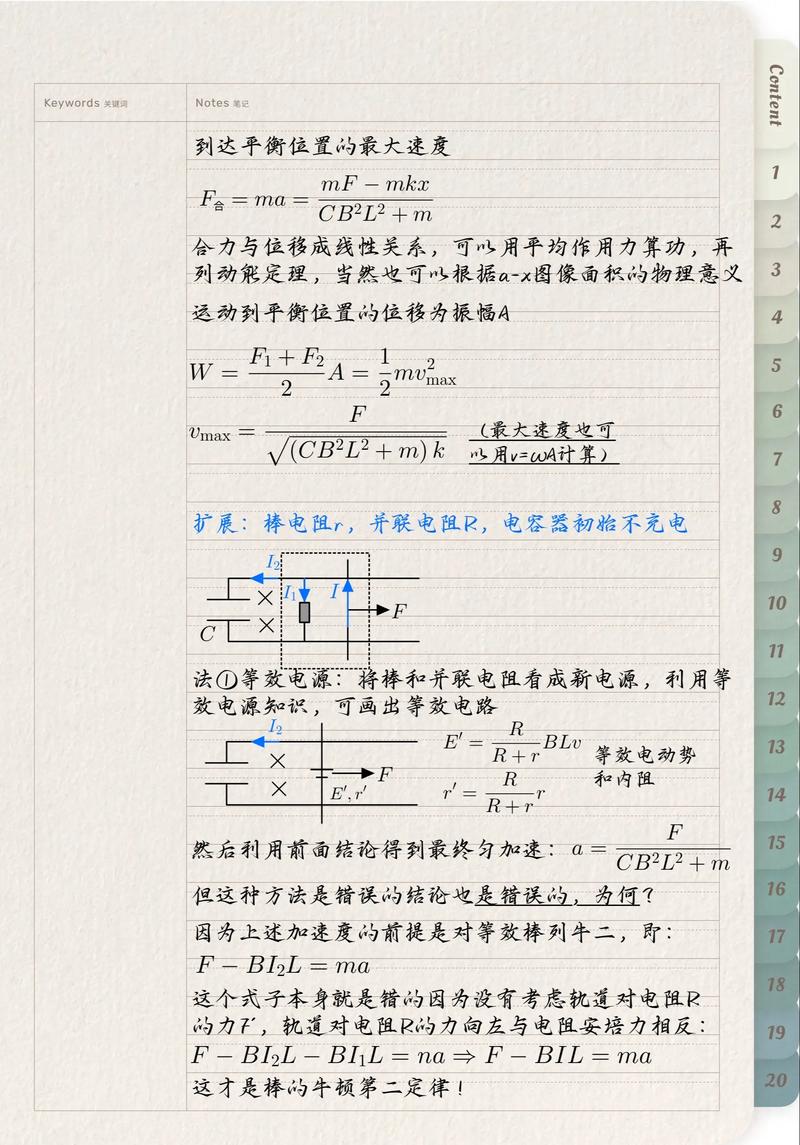 Keywords 关键词
Notes 笔记
到达平衡位置的最大速度
F合 = ma = (mF − mkx)/(CB²L² + m)
合力与位移成线性关系，可以用平均作用力算功，再
列动能定理，当然也可以根据a-x图像面积的物理意义
运动到平衡位置的位移为振幅A
W = (F₁ + F₂)/2 A = 1/2 mv²max
vmax = F/√((CB²L² + m) k)
（最大速度也可
以用v=ωA计算）
扩展：棒电阻r，并联电阻R，电容器初始不充电
I₂
I₁
I
F
C
法①等效电源：将棒和并联电阻看成新电源，利用等
效电源知识，可画出等效电路
I₂
F
E′, r′
E′ = R/(R + r) BLv
r′ = R/(R + r) r
等效电动势
和内阻
然后利用前面结论得到最终匀加速：a = F/(CB²L² + m)
但这种方法是错误的结论也是错误的，为何？
因为上述加速度的前提是对等效棒列牛二，即：
F − BI₂L = ma
这个式子本身就是错的因为没有考虑轨道对电阻R
的力F，轨道对电阻R的力向左与电阻安培力相反：
F − BI₂L − BI₁L = na ⇒ F − BIL = ma
这才是棒的牛顿第二定律！
Content
1
2
3
4
5
6
7
8
9
10
11
12
13
14
15
16
17
18
19
20